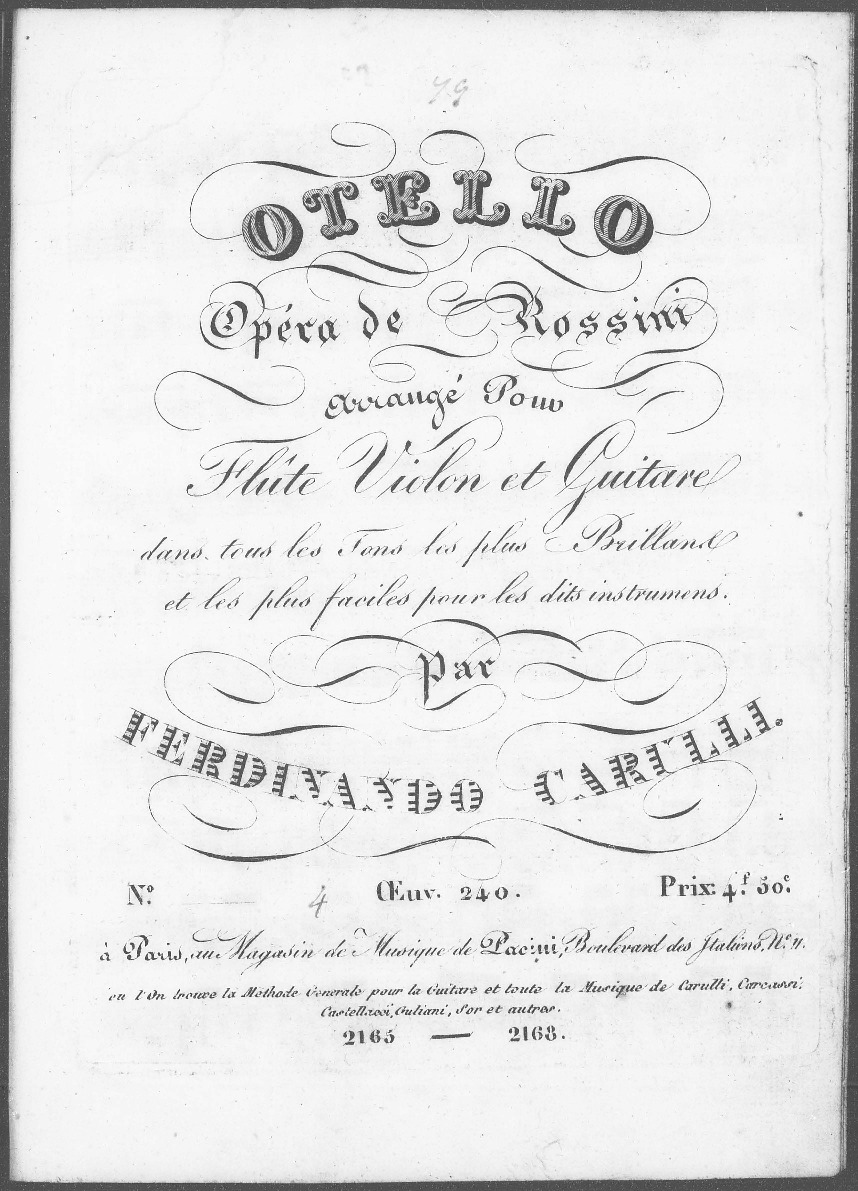 79
OTELLO
Opéra de Rossini
Arrangé Pour
Flûte Violon et Guitare
dans tous les Tons les plus Brillans
et les plus faciles pour les dits instrumens.
Par
FERDINANDO CARULLI.
N.º 4 Œuv. 240. Prix: 4.f 50.c
à Paris, au Magasin de Musique de Pacini, Boulevard des Italiens, N.º 11.
ou l'On trouve la Méthode Generale pour la Guitare et toute la Musique de Carulli, Carcassi,
Castellacci, Guliani, Sor et autres.
2165 — 2168.